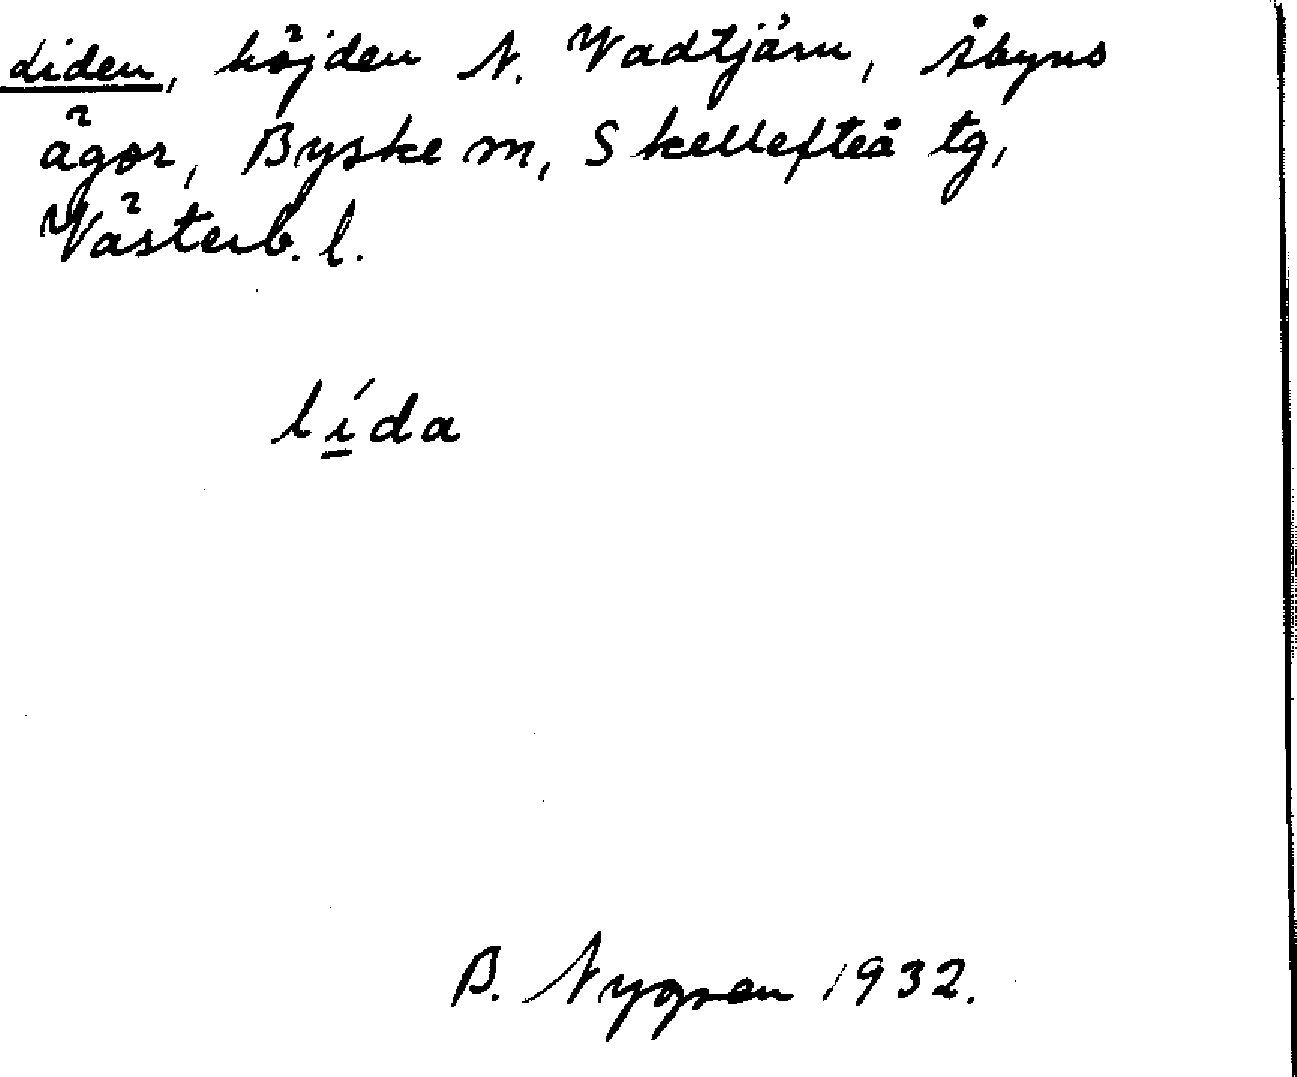 Liden, höjden N. Vadtjärn, Åbyns
ägor, Byske sn, Skellefteå tg,
Västerb. l.
lída
B. Nygren 1932.